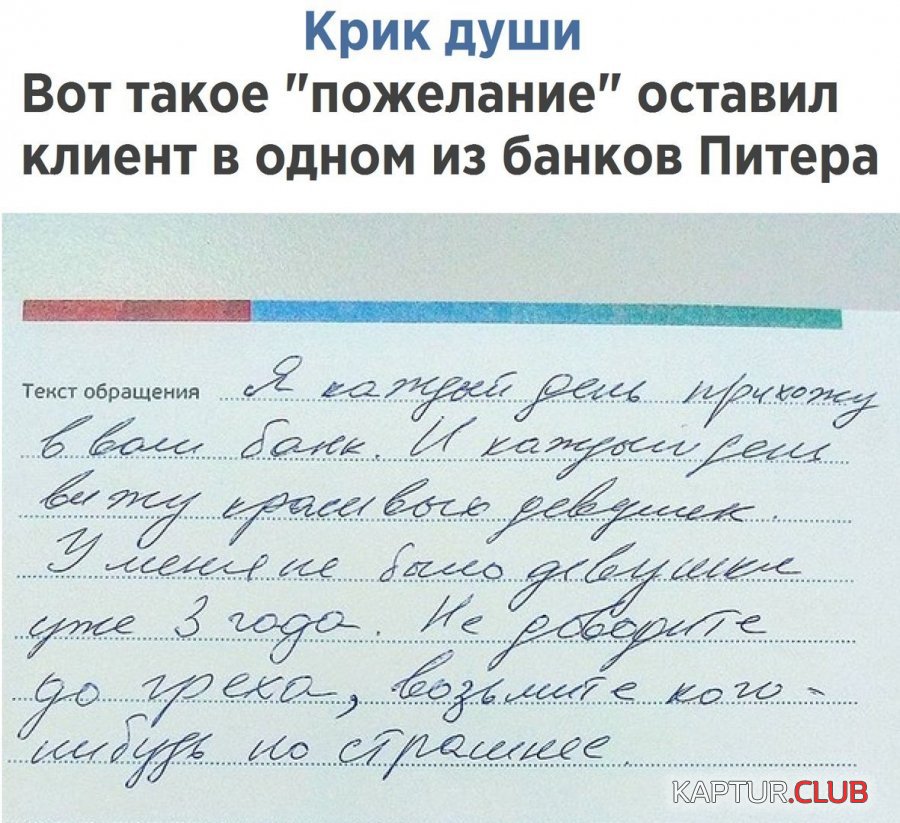 Крик души
Вот такое "пожелание" оставил
клиент в одном из банков Питера
Текст обращения Я каждый день прихожу
в ваш банк. И каждый день
вижу красивых девушек.
У меня не было девушки
уже 3 года. Не доводите
до греха, возьмите кого-
нибудь по страшнее.
KAPTUR.CLUB